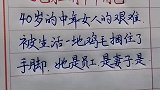 40岁的中年女人的艰难
被生活一地鸡毛捆住了
手脚.她是员工.是妻子是